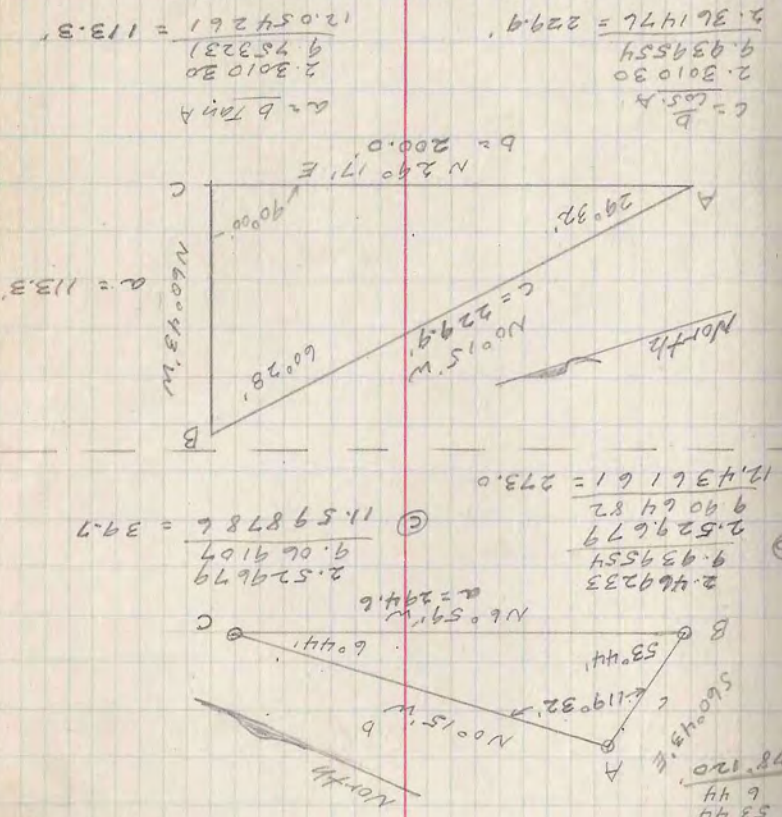 53 44
6 44
78° 120'
North
A
S60°43'E
c
119°32'
N0°15'W
b
53°44'
6°44'
B
C
N6°59'W
a=294.6
2.469233
9.939554
2.529679
9.906482
12.436161 = 273.0
C
2.529679
9.069107
11.598786 = 39.7
B
60°28'
North
N0°15'W
c = 229.9'
N60°43'W
a = 113.3'
29°32'
90°00'
A
C
N29°17'E
b = 200.0'
c = b
cos.A
2.301030
9.939554
2.361476 = 229.9'
a = b Tan A
2.301030
9.753231
12.054261 = 113.3'